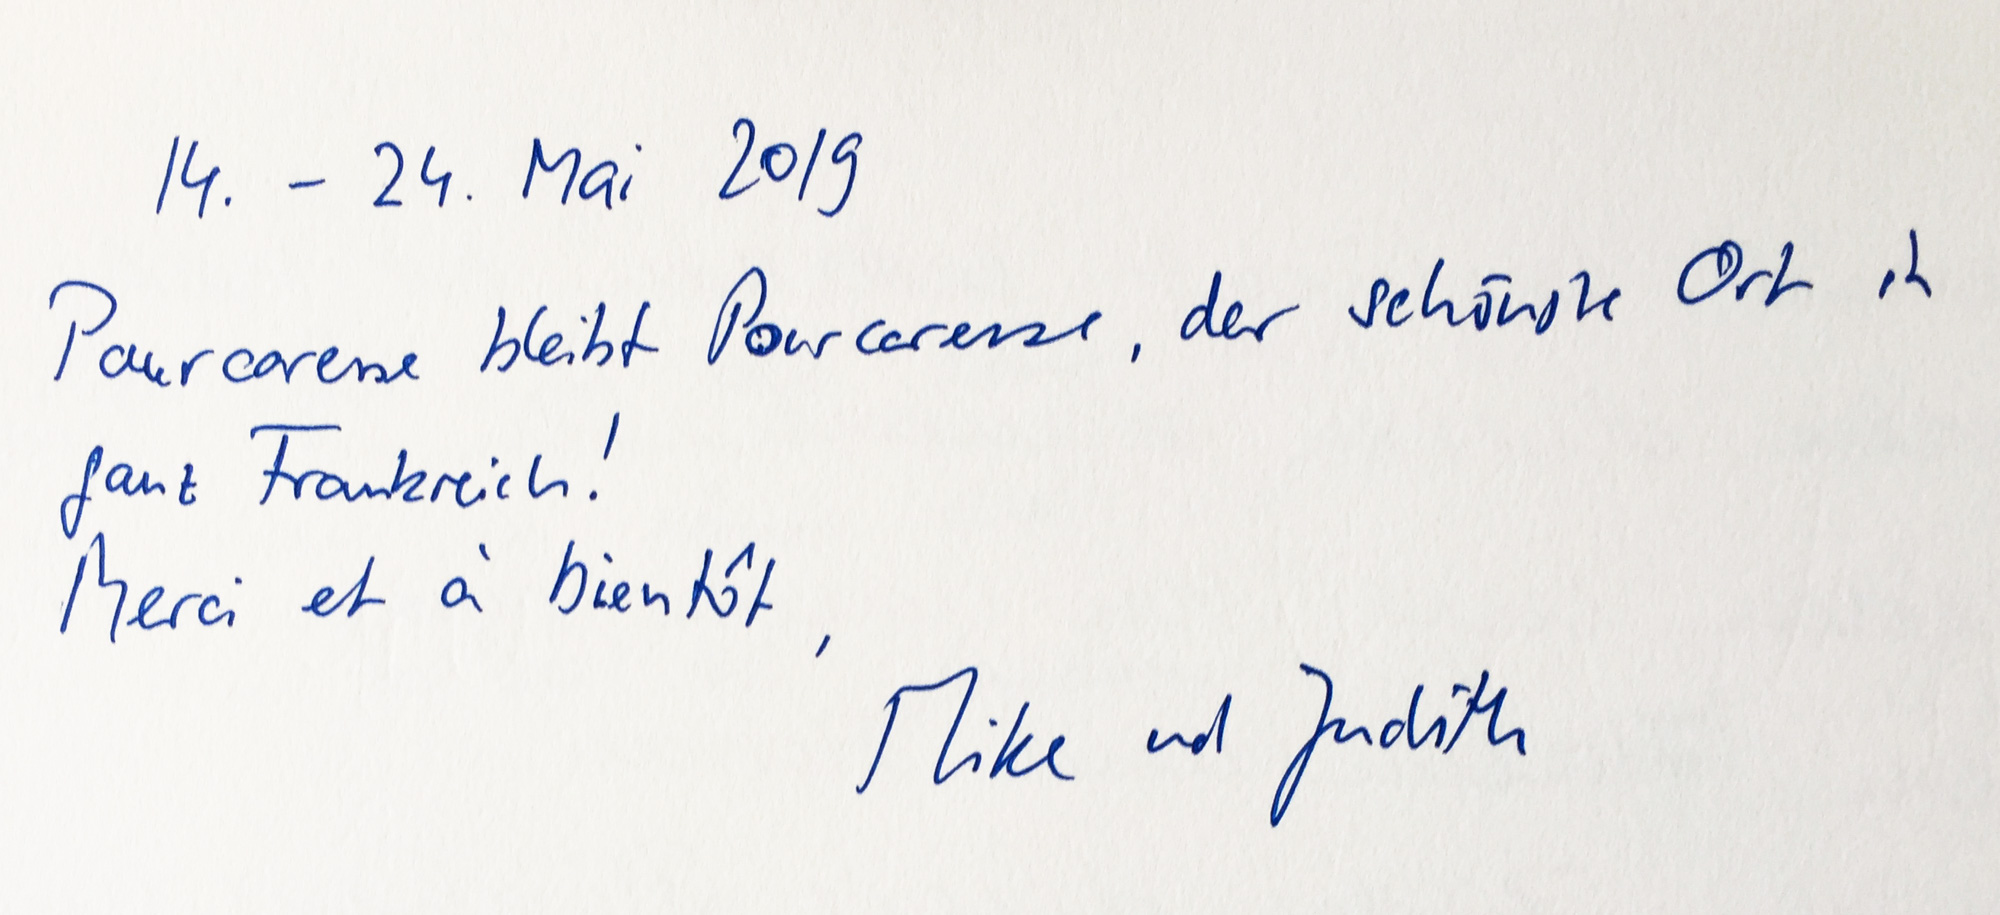 14. - 24. Mai 2019
Pourcaresse bleibt Pourcaresse, der schönste Ort in
ganz Frankreich!
Merci et à bientôt,
Mike und Judith